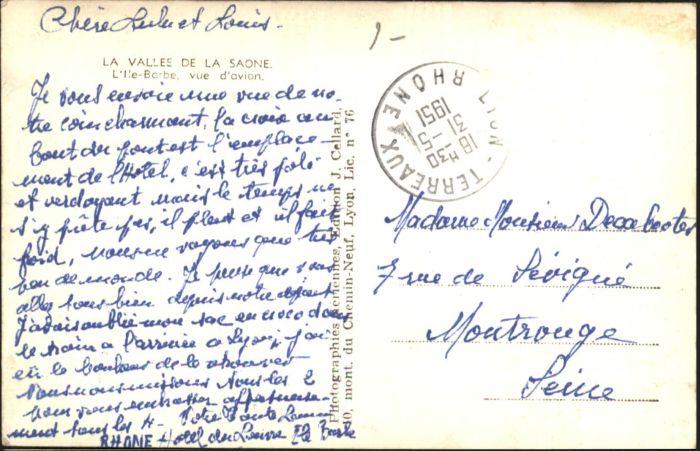 Chère Lulu et Louis.
LA VALLEE DE LA SAONE.
L'Ile-Barbe, vue d'avion.
Je vous envoie une vue de no-
tre coin charmant, la croix au
bout du pont est l'emplace-
ment de l'Hotel, c'est très joli
et verdoyant mais le temps ne
s'y prête pas, il pleut et il fait
froid, nous ne voyons que très
peu de monde. Je pense que vous
allez tous bien depuis notre départ
J'avais oublié mon sac en
le train à l'arrivée à Lyon j'ai
eu le bonheur de le retrouver
Nous nous unissons tous les 2
pour vous embrasser affectueuse-
ment tous les 4- Votre Tante
RHONE Hotel du Ile Barbe
Photographies aériennes, Edition J. Cellard,
40, mont. du Chemin-Neuf, Lyon, Lic. n° 76
TERREAUX
RHONE
18 H30
31-5-
1951
Madame Monsieur
7 rue de Sévigné
Montrouge
Seine